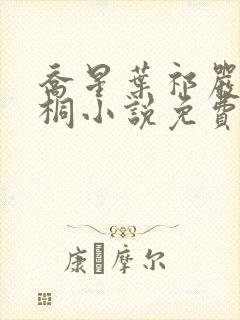 喬星葉祁嚴
桐小說免費
康摩尔